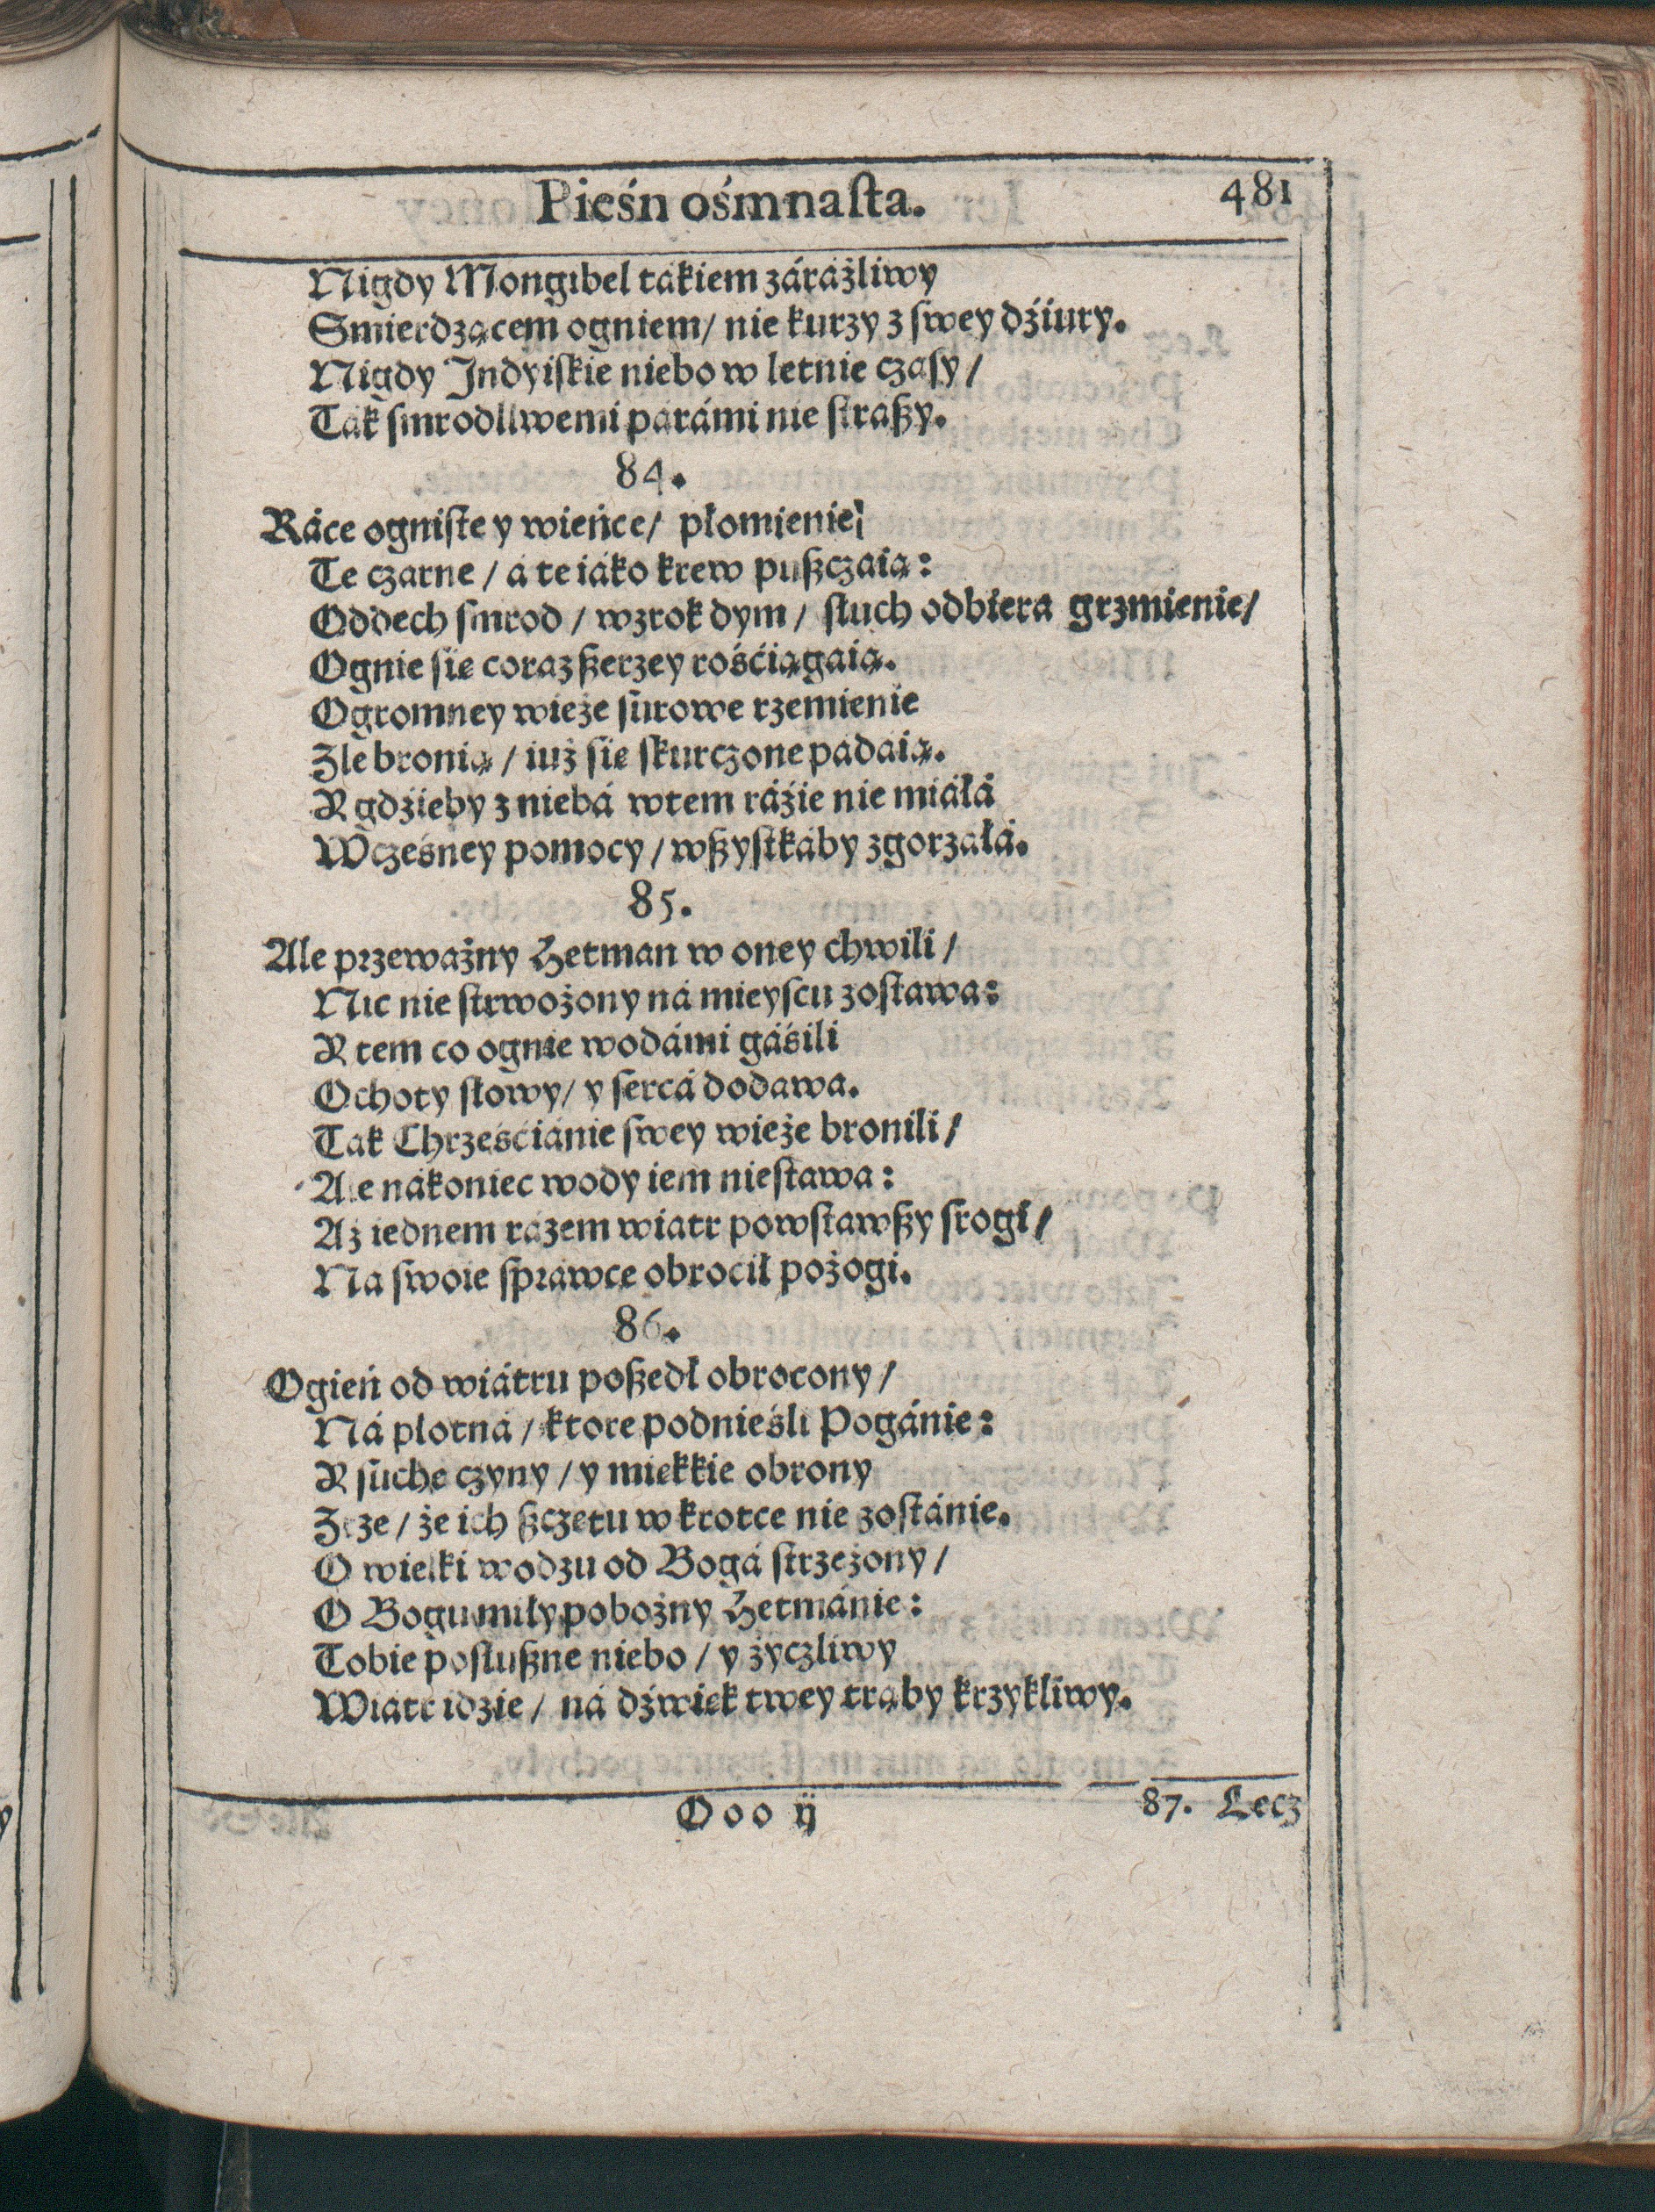 Pieśń ośmnaſta. 481
Nigdy Mongibel tákiem záráźliwy
Smierdzącem ogniem/ nie kurzy z ſwey dźiury.
Nigdy Jndyiſkie niebo w letnie czaſy/
Ták ſmrodliwemi párámi nie ſtraßy.
84.
Ráce ogniſte y wieńce/ płomienie/
Te czarne / á te iáko krew pußczáią:
Oddech ſmrod / wzrok dym / ſłuch odbiera grzmienie/
Ognie ſie coraz ßerzey rośćiągáią.
Ogromney wieże ſurowe rzemienie
Zle bronią / iuż ſie ſkurczone padáią.
Y gdźieby z niebá wtem ráźie nie miáłá
Wczeſney pomocy / wßyſtkáby zgorzáłá.
85.
Ale przeważny Hetman w oney chwili /
Nic nie ſtrwożony ná mieyſcu zoſtawa:
Y tem co ognie wodámi gáśili
Ochoty ſłowy/ y ſercá dodawa.
Tak Chrześćiánie ſwey wieże bronili/
Ale nákoniec wody iem nieſtawa:
Aż iednem rázem wiatr powſtawßy ſrogi/
Na ſwoie ſpráwce obrocił pożogi.
86.
Ogień od wiátru poßedł obrocony /
Ná płotná / ktore podnieśli Pogánie:
Y ſuche czyny / y miekkie obrony
Zrze / że ich ßczętu w krotce nie zoſtánie.
O wielki wodzu od Bogá ſtrzeżony /
O Bogu miły pobożny Hetmánie:
Tobie poſlußne niebo / y życzliwy
Wiátr idzie / ná dźwiek twey trąby krzykliwy.
Ooo ij 87. Lecz